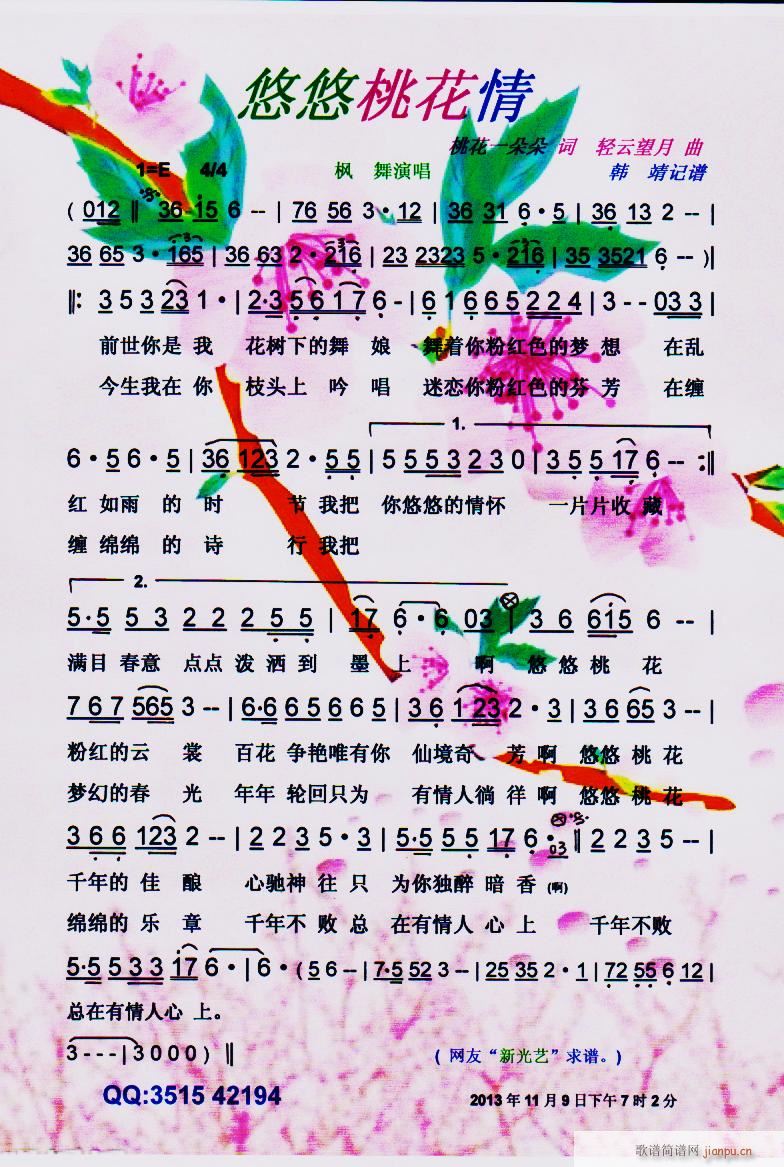 悠悠桃花情
桃花一朵朵 词 轻云望月 曲
1=E 4/4 枫 舞演唱 韩 靖记谱
( 012 ‖ 36 15 6 -- | 76 56 3·12 | 36 31 6·5 | 36 13 2 -- |
36 65 3·165 | 36 63 2·216 | 23 2323 5·216 | 35 3521 6 -- )|
‖: 3 5 3 23 1· | 2·3 5 6 1 7 6 - | 6 1 6 6 5 2 2 4 | 3 - - 03 3 |
前世你是 我 花树下的舞 娘 舞着你粉红色的梦 想 在乱
今生我在 你 枝头上 吟 唱 迷恋你粉红色的芬 芳 在缠
1.
6·5 6·5 | 36 123 2·5 5 | 5 5 5 3 2 3 0 | 3 5 5 17 6· -- :‖
红 如雨 的 时 节 我把 你悠悠的情怀 一片片收 藏
缠 绵绵 的 诗 行 我把
2.
5·5 5 3 2 2 2 5 5 | 17 6·6 03 | 3 6 615 6 -- |
满目 春意 点点 泼 洒 到 墨 上 啊 悠 悠 桃 花
7 6 7 565 3 -- | 6·6 6 5 6 6 5 | 3 6 1 23 2·3 | 3 6 65 3 -- |
粉红的云 裳 百花 争艳唯有你 仙境奇 芳 啊 悠悠 桃 花
梦幻的春 光 年年 轮回只为 有情人徜 徉 啊 悠悠 桃 花
3 6 6 123 2 -- | 2 2 3 5·3 | 5·5 5 5 17 6· 03 ‖ 2 2 3 5 -- |
千年的 佳 酿 心驰神 往 只 为你独醉 暗 香 (啊)
绵绵的 乐 章 千年不 败 总 在有情人 心 上 千年不败
5·5 5 3 3 17 6· | 6· ( 5 6 -- | 7·5 52 3 -- | 25 35 2·1 | 72 55 6 12 |
总在有情人心 上。
3 - - - | 3 0 0 0 ) ‖ ( 网友“新光艺”求谱。)
QQ:3515 42194 2013 年 11 月 9 日下午 7 时 2 分
歌谱简谱网 jianpu.cn